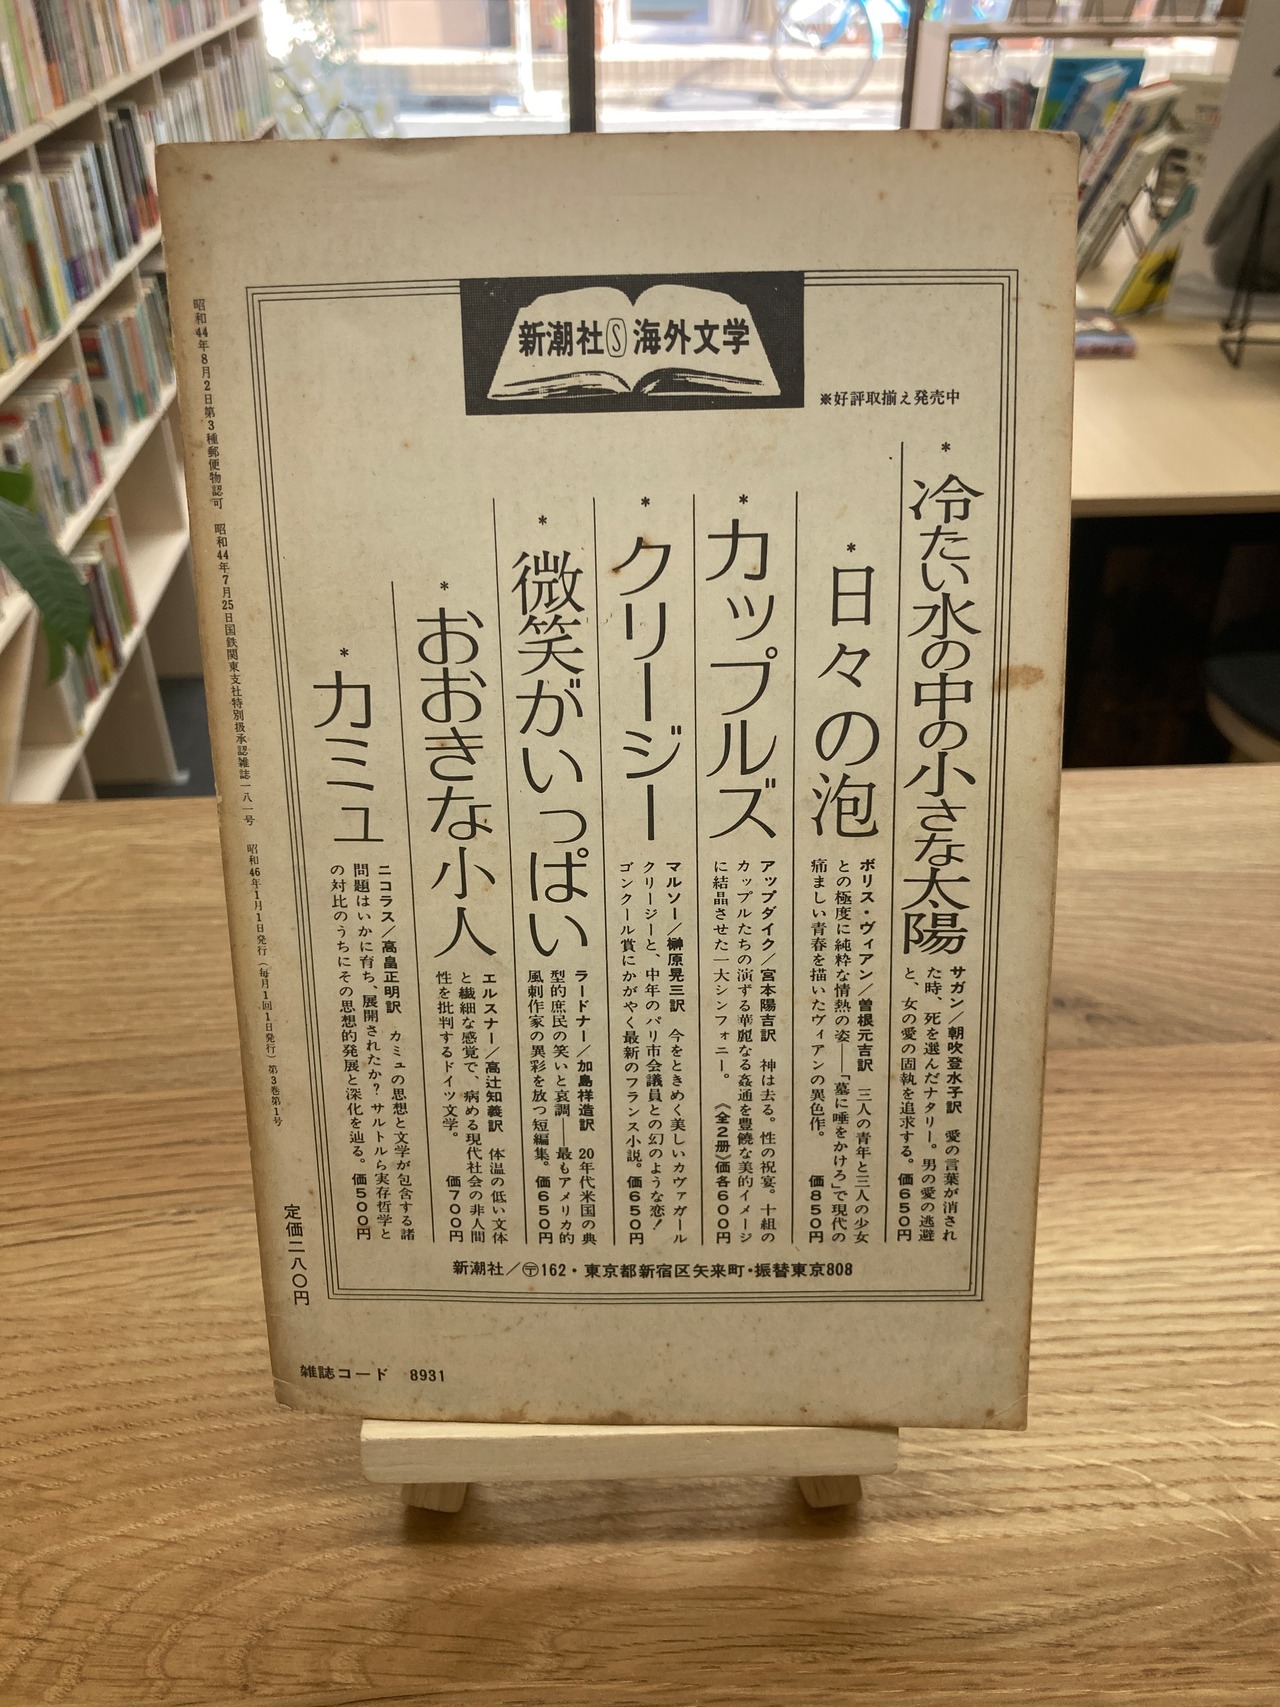 新潮社Ⓢ海外文学
※好評取揃え発売中
*冷たい水の中の小さな太陽
サガン／朝吹登水子訳　愛の言葉が消され
た時、死を選んだナタリー。男の愛の逃避
と、女の愛の固執を追求する。価650円
*日々の泡
ボリス・ヴィアン／曽根元吉訳　三人の青年と三人の少女
との極度に純粋な情熱の姿――「墓に唾をかけろ」で現代の
痛ましい青春を描いたヴィアンの異色作。価850円
*カップルズ
アップダイク／宮本陽吉訳　神は去る。性の祝宴。十組の
カップルたちの演ずる華麗なる姦通を豊饒な美的イメージ
に結晶させた一大シンフォニー。《全2册》価各600円
*クリージー
マルソー／榊原晃三訳　今をときめく美しいカヴァガール
クリージーと、中年のパリ市会議員との幻のような恋！
ゴンクール賞にかがやく最新のフランス小説。価650円
*微笑がいっぱい
ラードナー／加島祥造訳　20年代米国の典
型的庶民の笑いと哀調――最もアメリカ的
風刺作家の異彩を放つ短編集。価650円
*おおきな小人
エルスナー／高辻知義訳　体温の低い文体
と繊細な感覚で、病める現代社会の非人間
性を批判するドイツ文学。価700円
*カミュ
ニコラス／高畠正明訳　カミュの思想と文学が包含する諸
問題はいかに育ち、展開されたか？サルトルら実存哲学と
の対比のうちにその思想的発展と深化を辿る。価500円
新潮社／〒162・東京都新宿区矢来町・振替東京808
昭和44年8月2日第3種郵便物認可　昭和44年7月25日国鉄関東支社特別扱承認雑誌一八一号　昭和46年1月1日発行（毎月1回1日発行）第3巻第1号
定価二八〇円
雑誌コード　8931